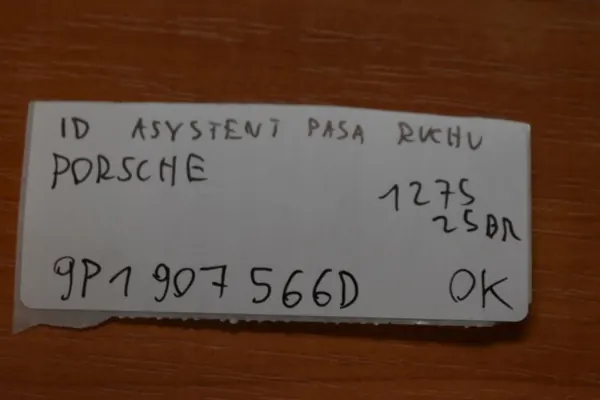 ID ASYSTENT PASA RUCHU
PORSCHE
1275
25BR
9P1 907 566D
OK